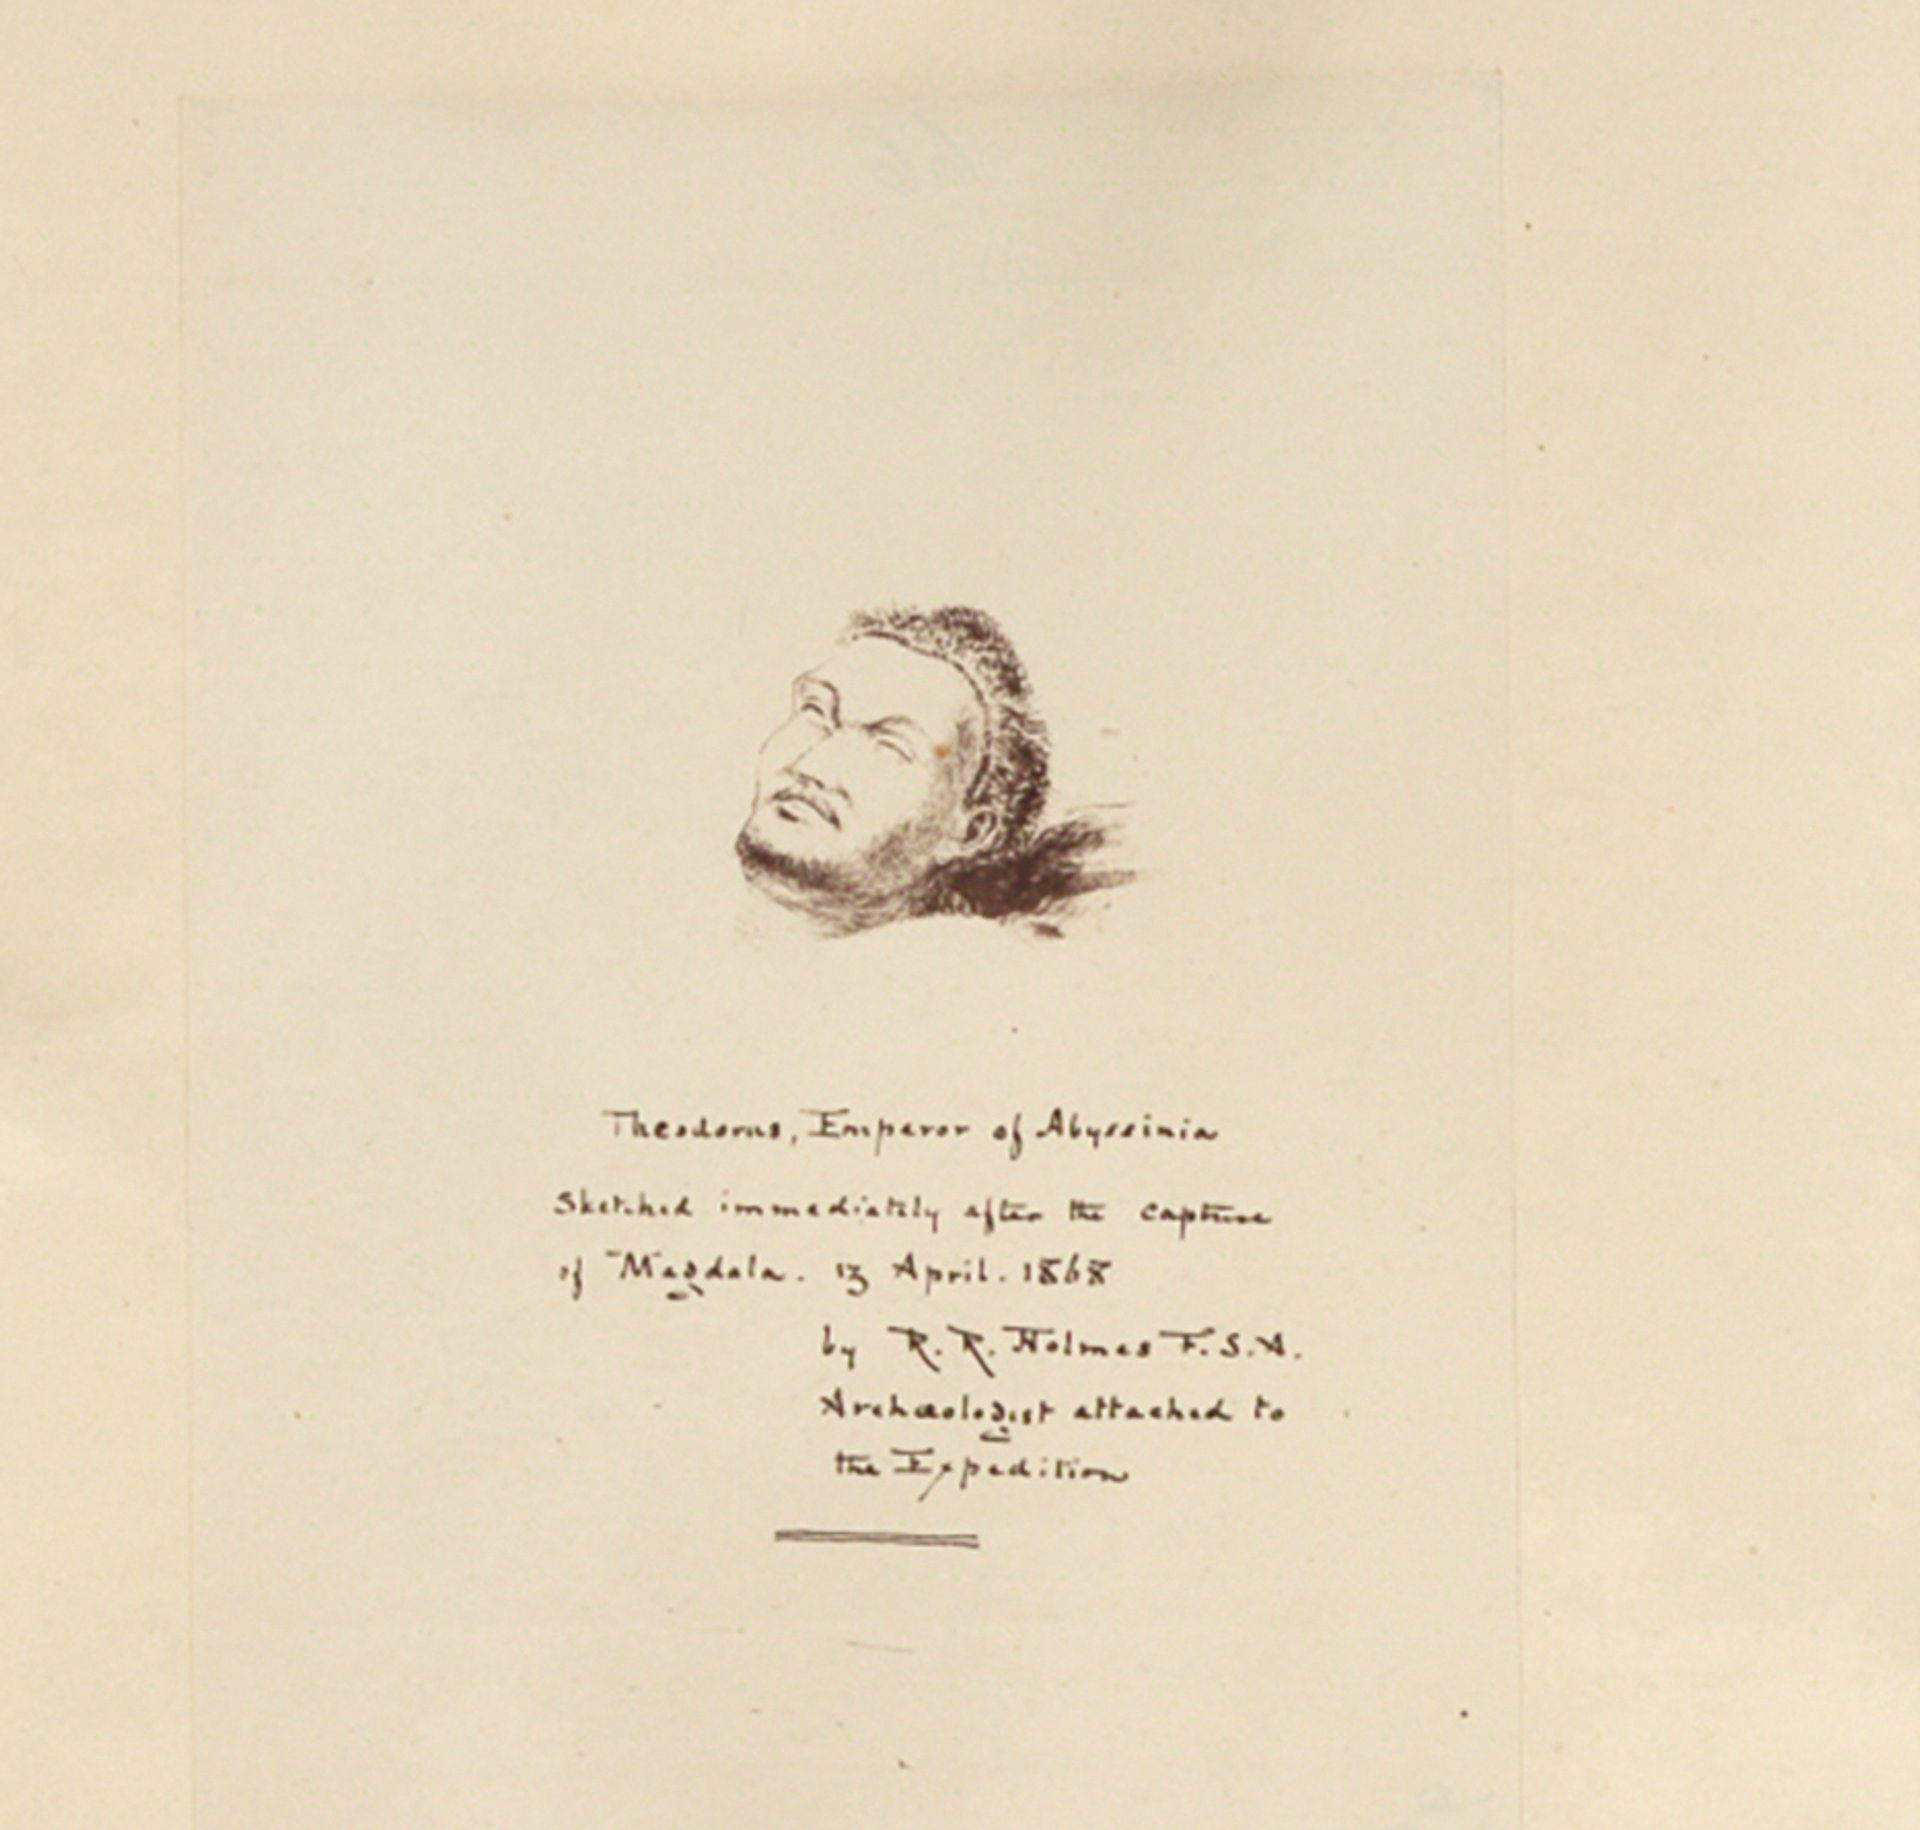 Theodorus, Emperor of Abyssinia
Sketched immediately after the capture
of Magdala. 13 April. 1868
by R. R. Holmes F.S.A.
Archæologist attached to
the Expedition